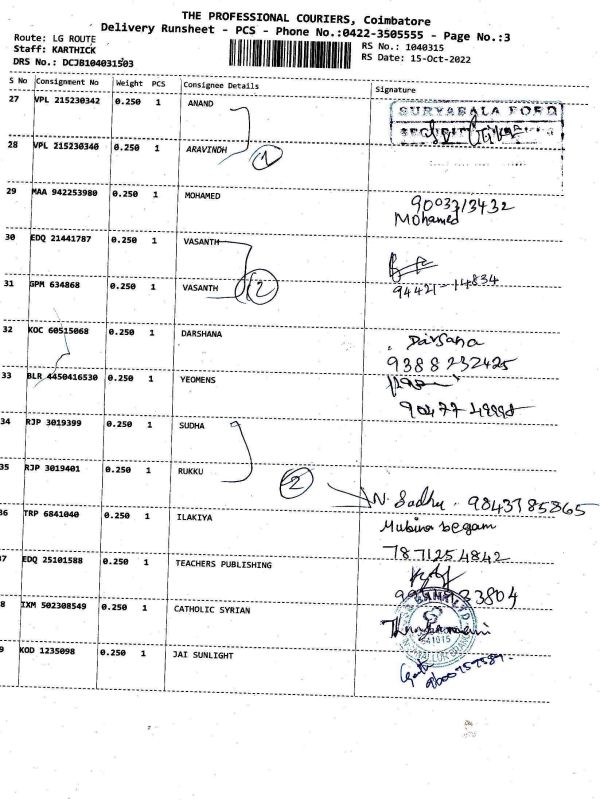 THE PROFESSIONAL COURIERS, Coimbatore
Delivery Runsheet - PCS - Phone No.:0422-3505555 - Page No.:3
Route: LG ROUTE
RS No.: 1040315
Staff: KARTHICK
RS Date: 15-Oct-2022
DRS No.: DCJB104031503
S No Consignment No Weight PCS Consignee Details Signature
27 VPL 215230342 0.250 1 ANAND
SURYABALA FORD
28 VPL 215230340 0.250 1 ARAVINDH 1
29 MAA 942253980 0.250 1 MOHAMED 9003313432
Mohamed
30 EDQ 21441787 0.250 1 VASANTH
31 GPM 634868 0.250 1 VASANTH 2 94421-14834
32 KOC 60515068 0.250 1 DARSHANA Darsana
9388232425
33 BLR 4450416530 0.250 1 YEOMENS
34 RJP 3019399 0.250 1 SUDHA
35 RJP 3019401 0.250 1 RUKKU 2 N. Sadhu. 9843785865
36 TRP 6841040 0.250 1 ILAKIYA Mubina begam
7871254842
7 EDQ 25101588 0.250 1 TEACHERS PUBLISHING
8 IXM 502308549 0.250 1 CATHOLIC SYRIAN
641015
9 KOD 1235098 0.250 1 JAI SUNLIGHT